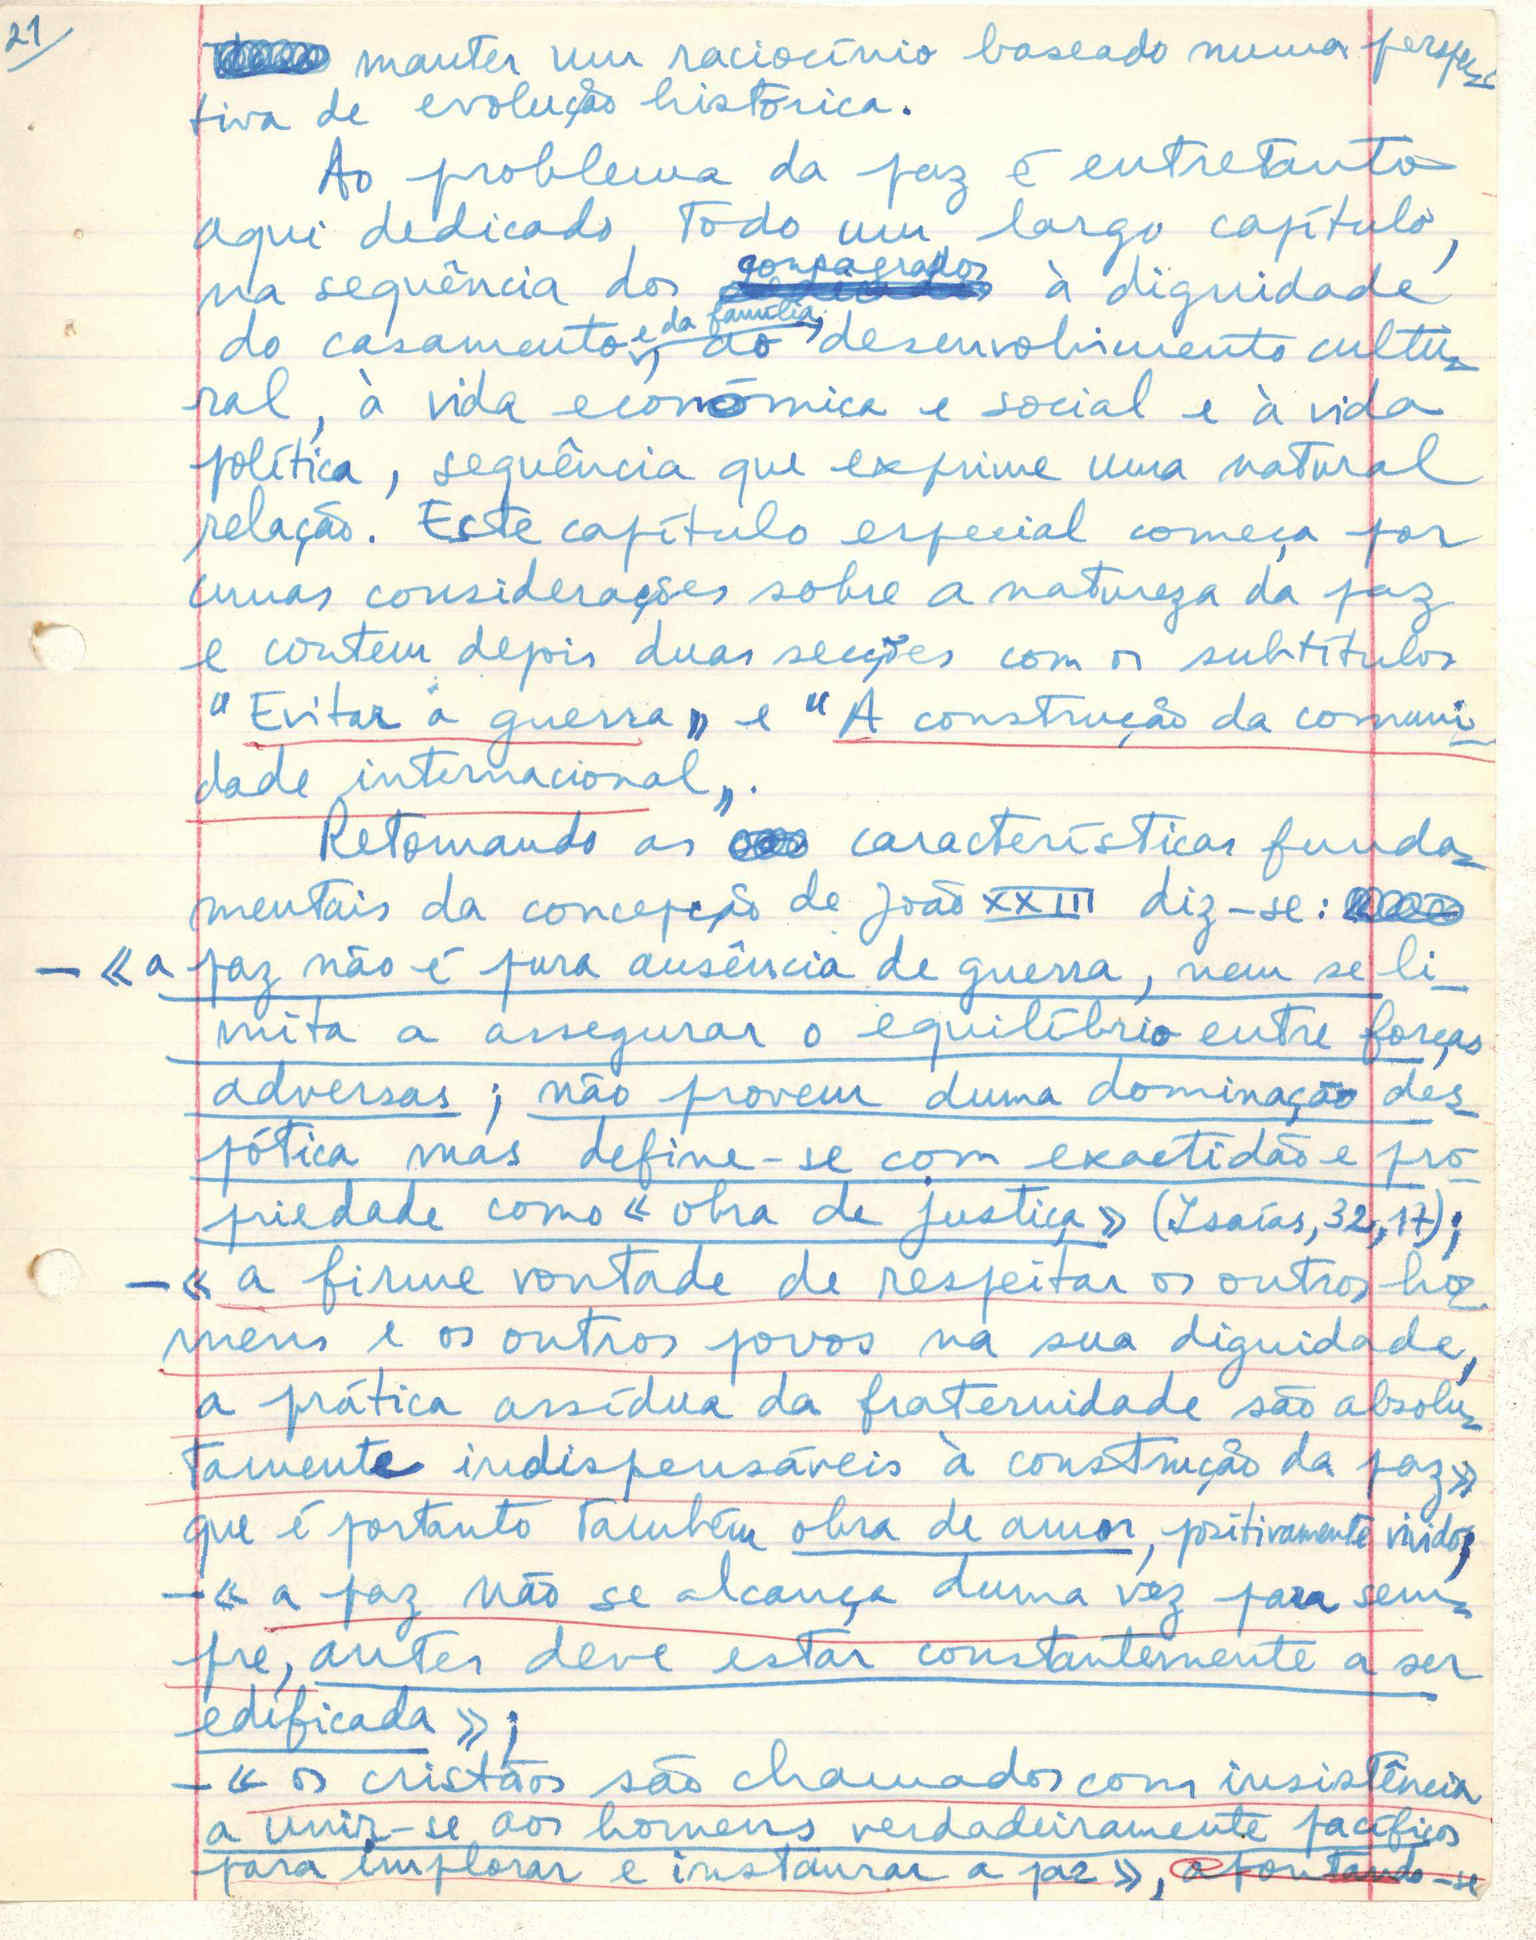 21
manter um raciocínio baseado numa perspec-
tiva de evolução histórica.
Ao problema da paz é entretanto
aqui dedicado todo um largo capítulo,
consagrados
na sequência dos à dignidade
e da família,
do casamento, ao desenvolvimento cultu-
ral, à vida económica e social e à vida
política, sequência que exprime uma natural
relação. Este capítulo especial começa por
umas considerações sobre a natureza da paz
e contem depois duas secções com os subtítulos
"Evitar a guerra„ e "A construção da comuni-
dade internacional„.
Retomando as características funda-
mentais da concepção de João XXIII diz-se:
— «a paz não é pura ausência de guerra, nem se li-
mita a assegurar o equilíbrio entre forças
adversas; não provem duma dominação des-
pótica mas define-se com exactidão e pro-
priedade como «obra de justiça» (Isaías, 32, 17);
— «a firme vontade de respeitar os outros ho-
mens e os outros povos na sua dignidade,
a prática assídua da fraternidade são absolu-
tamente indispensáveis à construção da paz»
que é portanto também obra de amor, positivamente vivido;
— «a paz não se alcança duma vez para sem-
pre, antes deve estar constantemente a ser
edificada»;
— «os cristãos são chamados com insistência
a unir-se aos homens verdadeiramente pacíficos
para implorar e instaurar a paz», apontando-se